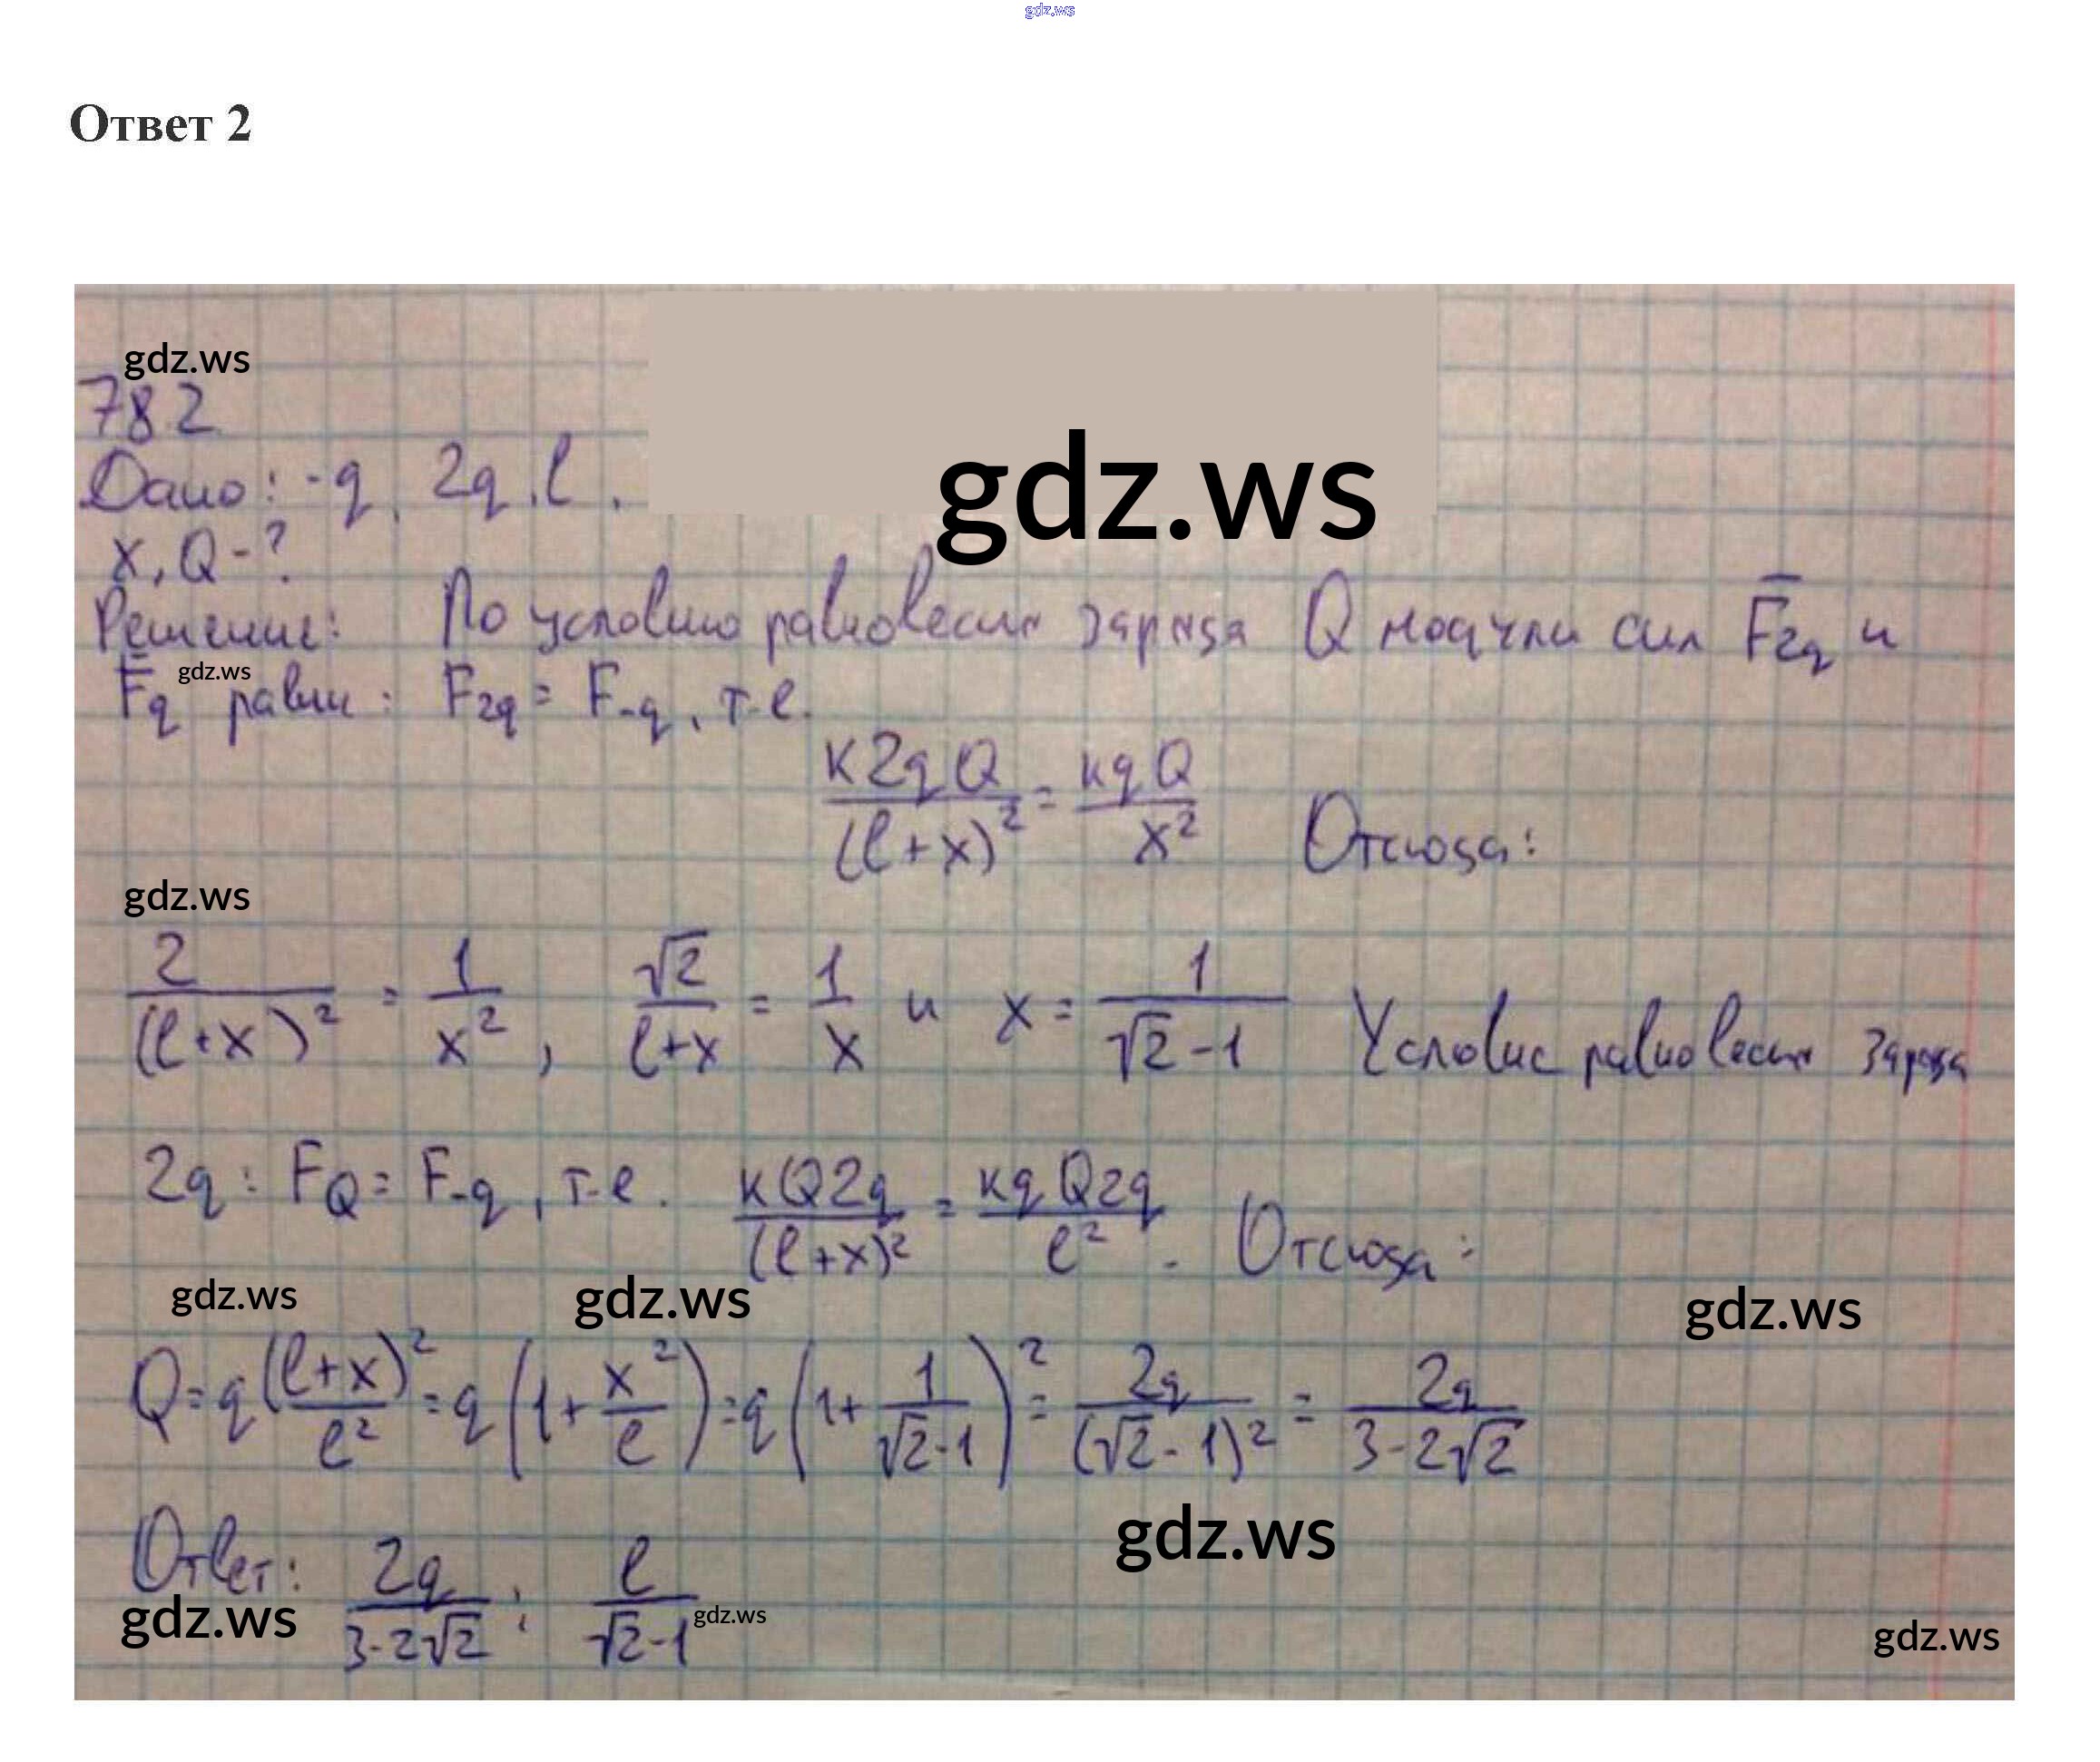 gdz.ws
Ответ 2
gdz.ws
782
Дано: -q, 2q, l.
gdz.ws
x, Q - ?
Решение: По условию равновесия заряда Q модули сил F̅2q и
F̅q равны: F2q = F-q, т.е.
gdz.ws
k2qQ/(l+x)² = kqQ/x² Отсюда:
gdz.ws
2/(l+x)² = 1/x², √2/(l+x) = 1/x и x = 1/(√2-1) Условие равновесия заряда
2q: FQ = F-q, т.е. kQ2q/(l+x)² = kqQ2q/l². Отсюда:
gdz.ws gdz.ws gdz.ws
Q = q(l+x)²/l² = q(1+x²/l) = q(1+1/(√2-1))² = 2q/(√2-1)² = 2q/(3-2√2)
gdz.ws
Ответ: 2q/(3-2√2); l/(√2-1)
gdz.ws gdz.ws gdz.ws